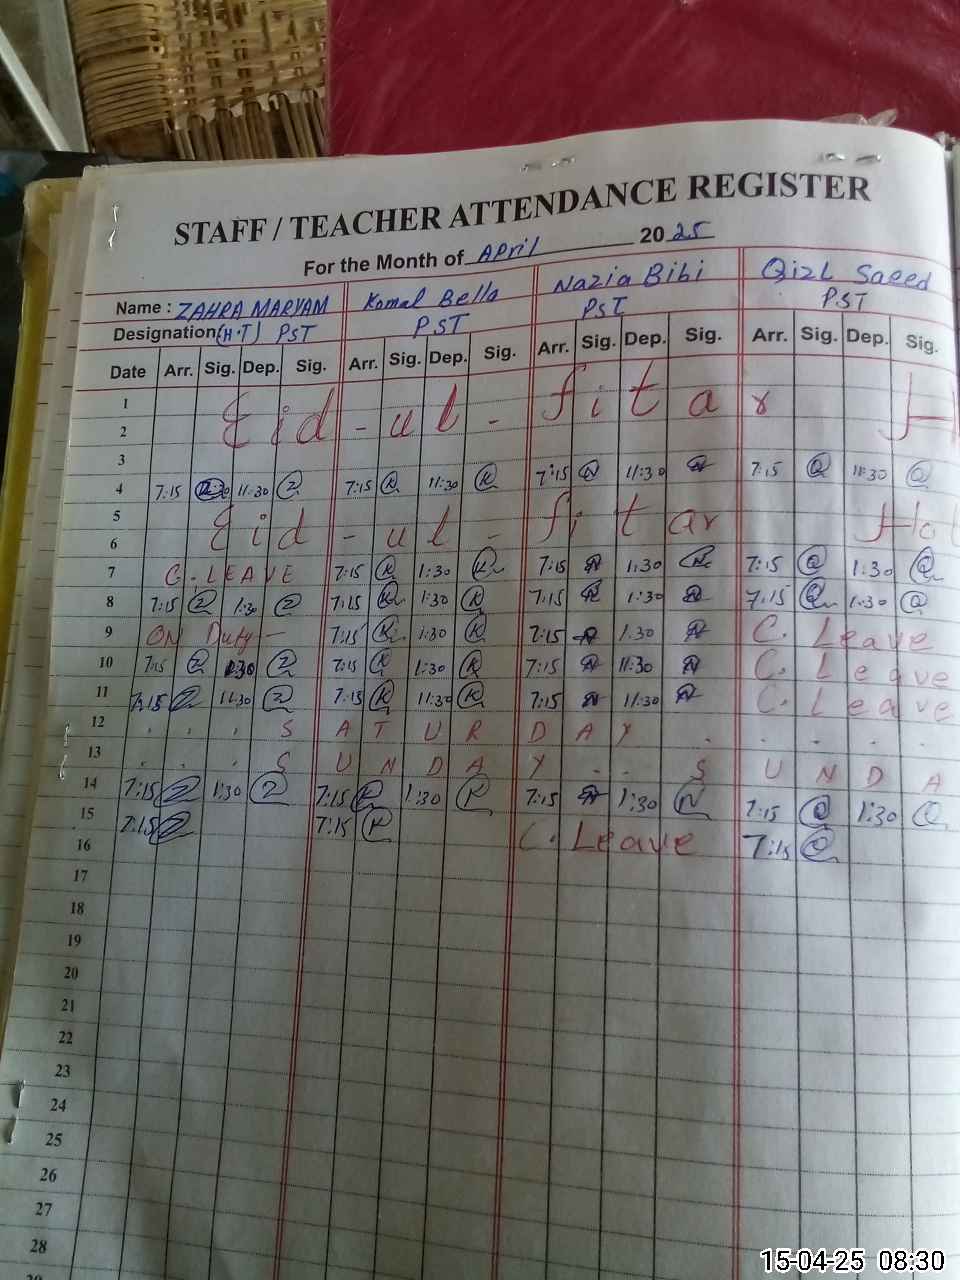 STAFF / TEACHER ATTENDANCE REGISTER
For the Month of April 2025
Name : ZAHRA MARYAM Komal Bella Nazia Bibi Qizl Saeed
Designation (H.T) PST PST PST PST
Date Arr. Sig. Dep. Sig. Arr. Sig. Dep. Sig. Arr. Sig. Dep. Sig. Arr. Sig. Dep. Sig.
1
Eid - ul - fitar H
2
3
4 7:15 11:30 2 7:15 K 11:30 K 7:15 N 11:30 N 7:15 Q 11:30 Q
5
Eid - ul - fitar Hol
6
7 C. LEAVE 7:15 K 1:30 K 7:15 N 1:30 N 7:15 Q 1:30 Q
8 7:15 2 1:30 2 7:15 K 1:30 K 7:15 N 1:30 N 7:15 Q 1:30 Q
9 ON Duty - 7:15 K 1:30 K 7:15 N 1:30 N C. Leave
10 7:15 2 1:30 2 7:15 K 1:30 K 7:15 N 11:30 N C. Leave
11 7:15 2 11:30 2 7:15 K 11:30 K 7:15 N 11:30 N C. Leave
12 . . . S A T U R D A Y . . . . .
13 . . . S U N D A Y . . S U N D A
14 7:15 2 1:30 2 7:15 K 1:30 K 7:15 N 1:30 N 7:15 Q 1:30 Q
15 7:15 2 7:15 K C. Leave 7:15 Q
16
17
18
19
20
21
22
23
24
25
26
27
28
15-04-25 08:30